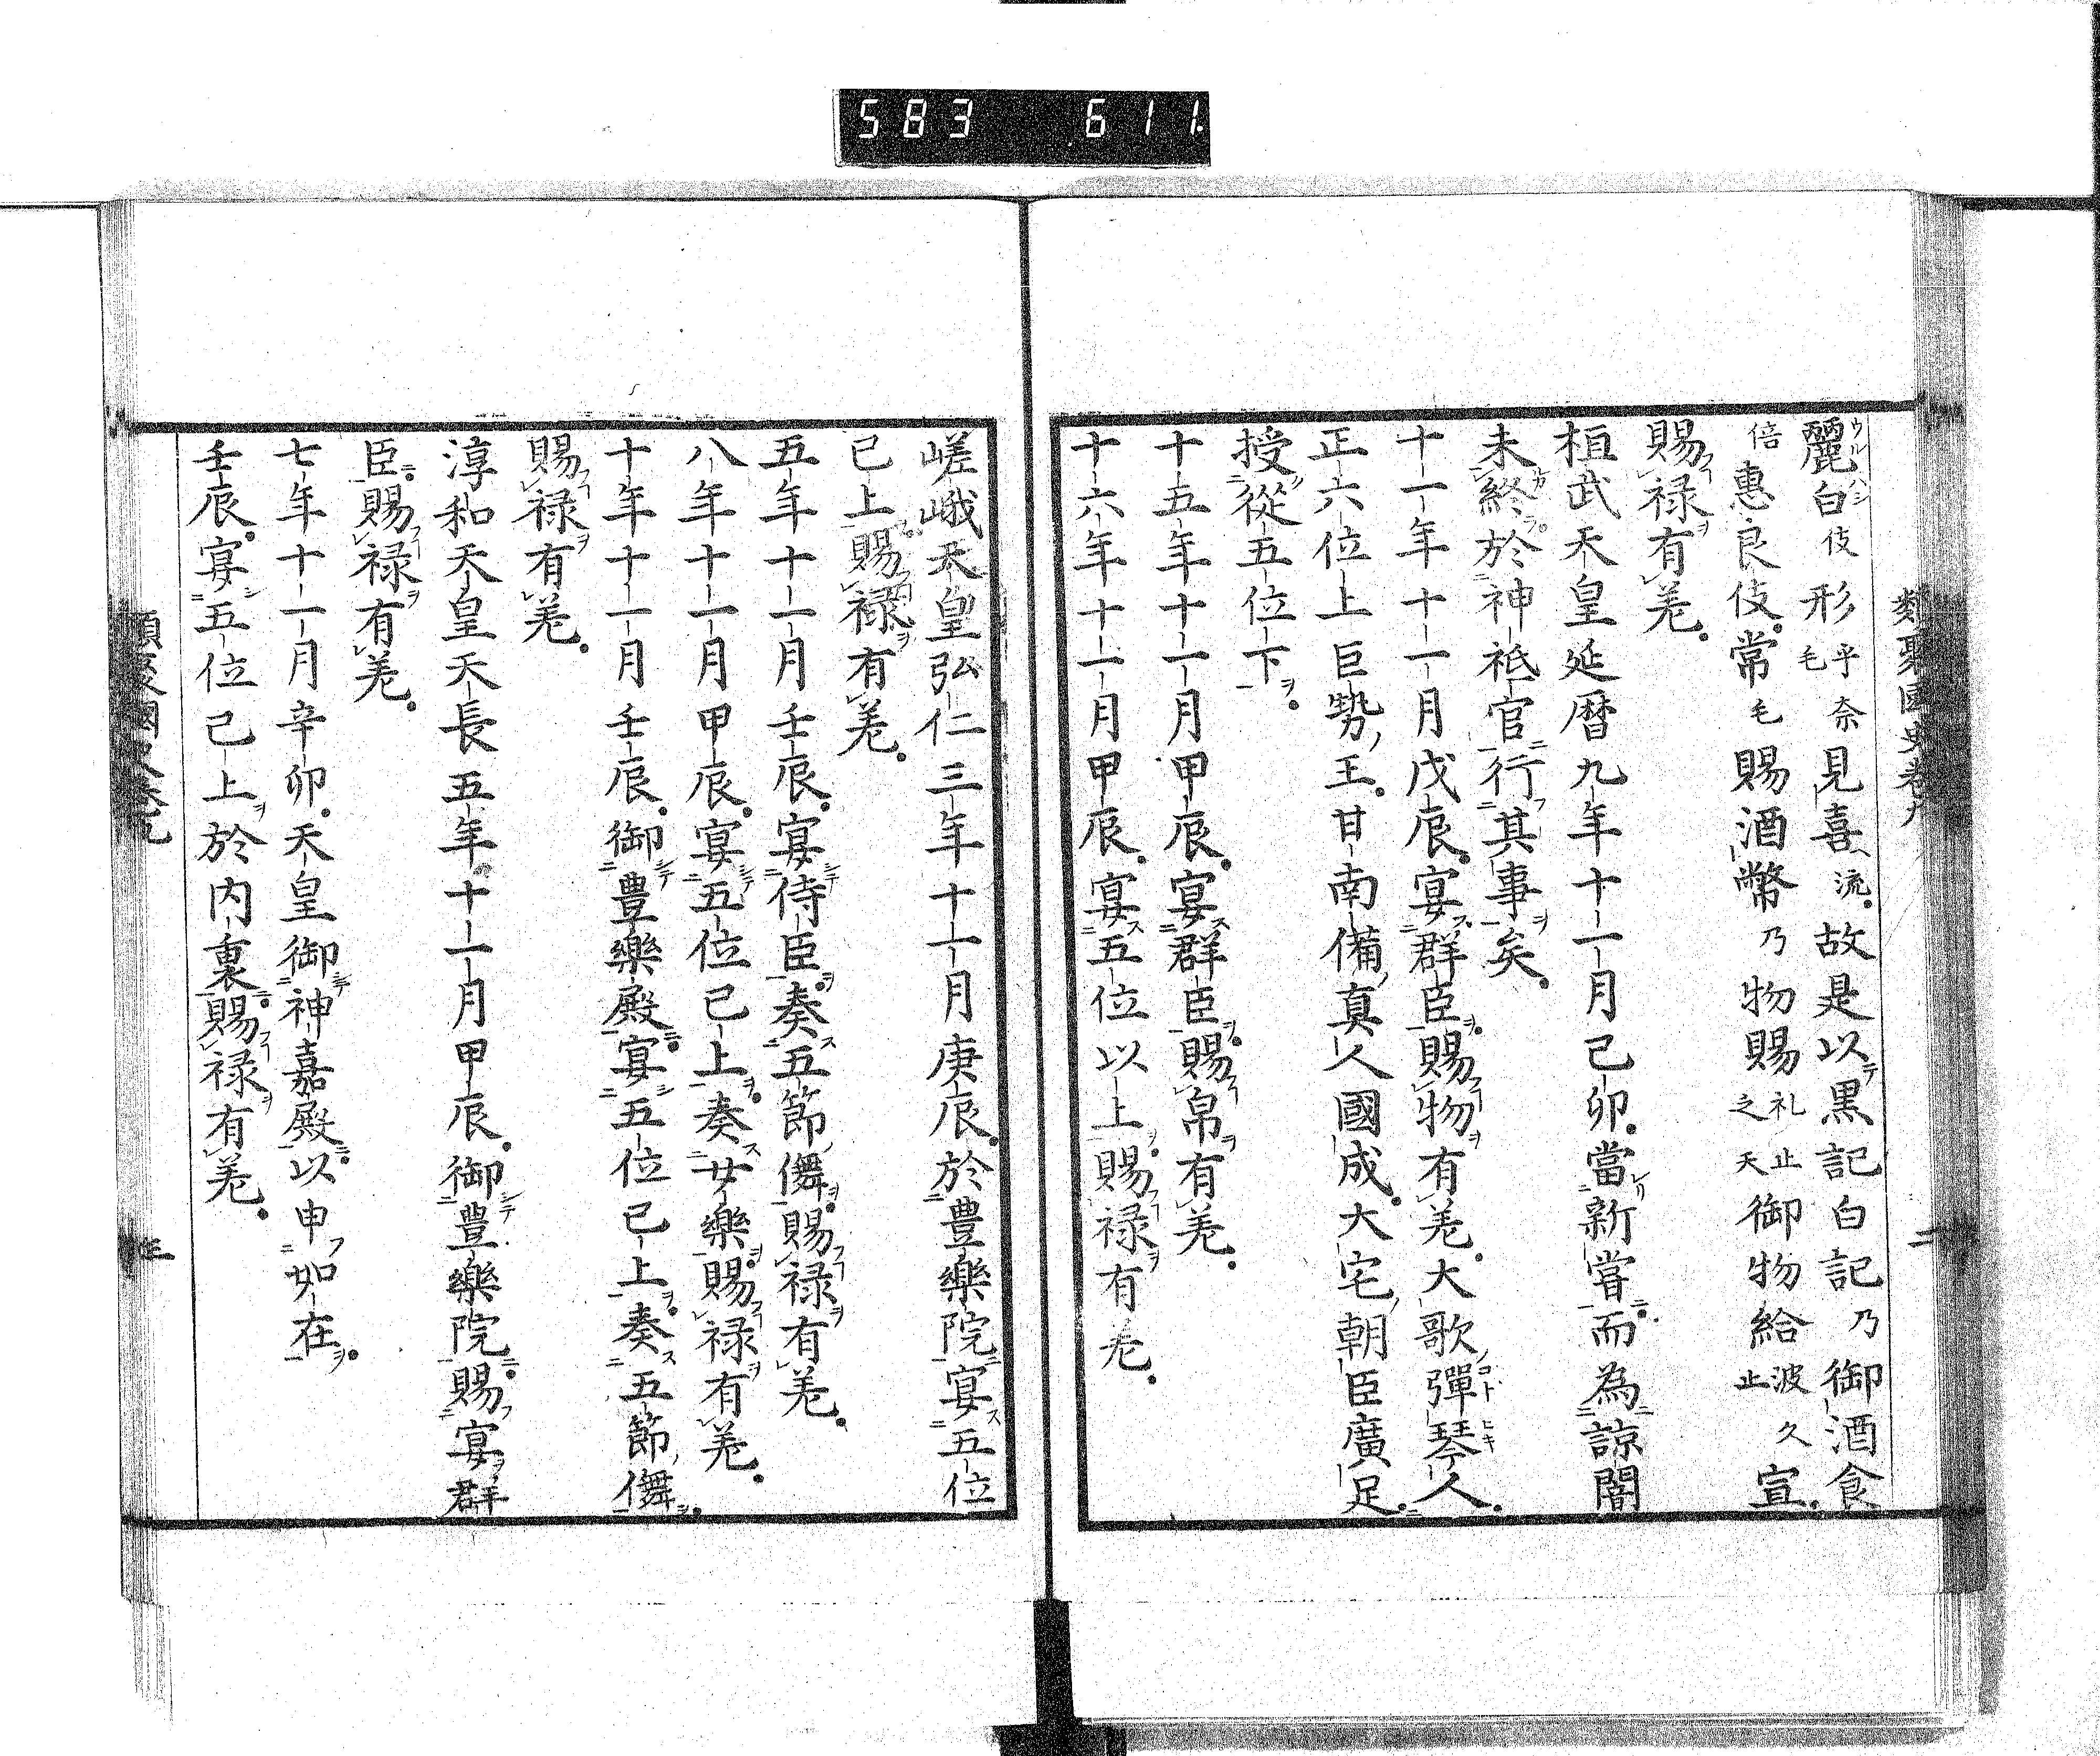 583 611.
類聚國史卷九 二
麗白伎形乎毛奈見喜流故是以黒記白記乃御酒食
倍惠良伎常毛賜酒幣乃物賜礼之止天御物給波止久宣
賜禄有差
桓武天皇延暦九年十一月己卯當新嘗而為諒闇
未終於神祇官行其事矣
十一年十一月戊辰宴群臣賜物有差大歌彈琴人
正六位上巨勢王甘南備真人國成大宅朝臣廣足
授從五位下
十五年十一月甲辰宴群臣賜帛有差
十六年十一月甲辰宴五位以上賜禄有差
嵯峨天皇弘仁三年十一月庚辰於豊樂院宴五位
已上賜禄有差
五年十一月壬辰宴侍臣奏五節儛賜禄有差
八年十一月甲辰宴五位已上奏女樂賜禄有差
十年十一月壬辰御豊樂殿宴五位已上奏五節儛
賜禄有差
淳和天皇天長五年十一月甲辰御豊樂院賜宴群
臣賜禄有差
七年十一月辛卯天皇御神嘉殿以申如在
壬辰宴五位已上於内裏賜禄有差
類聚國史卷九 三